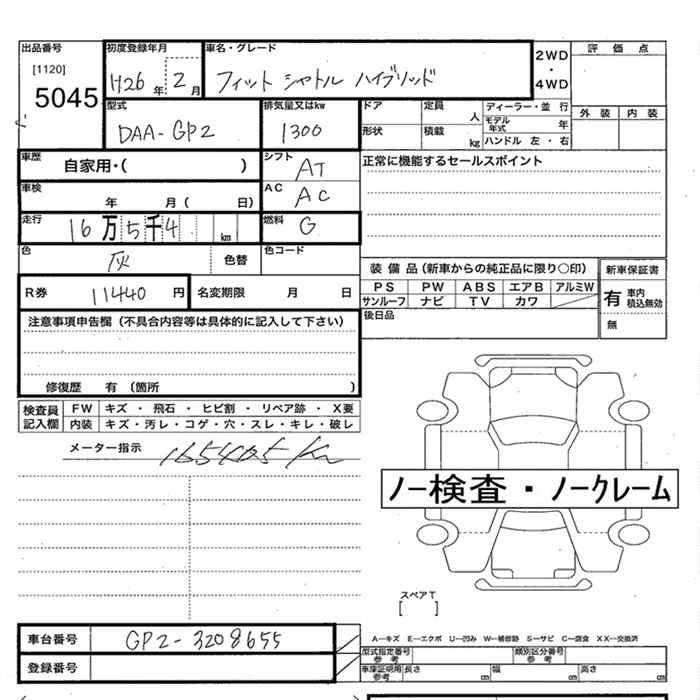 出品番号 初度登録年月 車名・グレード 2WD・4WD 評価点
[1120]
5045 H26年 2月 フィット シャトル ハイブリッド
外装 内装
型式 排気量又はkw ドア 定員 人 ディーラー・並行
DAA-GP2 1300 形状 積載 kg モデル年式 年
ハンドル 左・右
車歴 自家用・( ) シフト AT 正常に機能するセールスポイント
車検 年 月( 日) AC AC
走行 16万5千4 km 燃料 G
色 灰 色替 色コード
装備品(新車からの純正品に限り○印) 新車保証書
PS PW ABS エアB アルミW
サンルーフ ナビ TV カワ
有 車内積込無効
無
R券 11440円 名変期限 月 日
後日品
注意事項申告欄(不具合内容等は具体的に記入して下さい)
修復歴 有(箇所 )
検査員記入欄 FW キズ・飛石・ヒビ割・リペア跡・X要
内装 キズ・汚レ・コゲ・穴・スレ・キレ・破レ
メーター指示 165405km
ノー検査・ノークレーム
スペアT
[ ]
車台番号 GP2-3208655
登録番号
A―キズ E―エクボ U―凹み W―補修跡 S―サビ C―腐食 XX―交換済
型式指定番号 参考 類別区分番号 参考
車庫証明用 参考 長さ cm 幅 cm 高さ cm